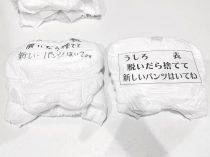 脱いだら捨てて
新しいパンツはいてね
うしろ
脱いだら捨てて
新しいパンツはいてね